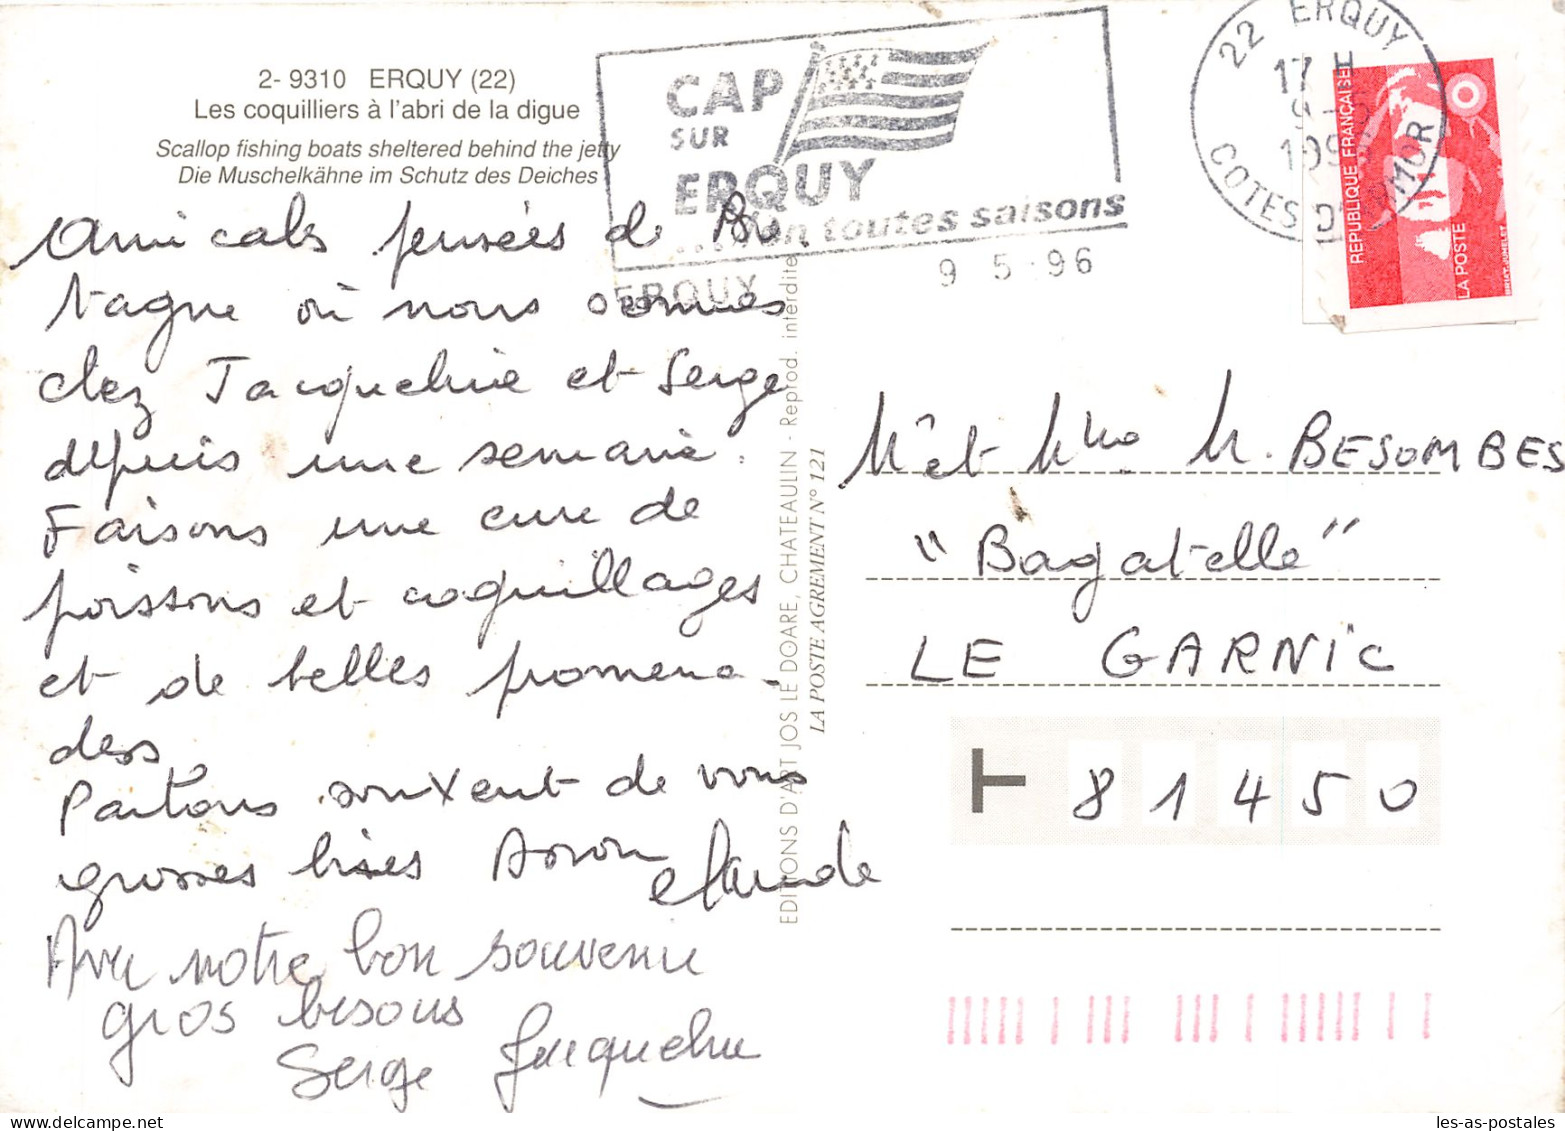 2- 9310 ERQUY (22)
Les coquilliers à l'abri de la digue
Scallop fishing boats sheltered behind the jetty
Die Muschelkähne im Schutz des Deiches
CAP
SUR
ERQUY
...en toutes saisons
ERQUY
9 5 96
22 ERQUY
17 H
9-5
199
COTES D'ARMOR
REPUBLIQUE FRANÇAISE
LA POSTE
BRIAT-JUMELET
Amicales pensées de Bre
tagne où nous sommes
chez Jacqueline et Serge
depuis une semaine.
Faisons une cure de
poissons et coquillages
et de belles promena-
des.
Parlons souvent de vous
grosses bises
Claude
Avec notre bon souvenir
gros bisous
Serge Jacqueline
EDITIONS D'ART JOS LE DOARE, CHATEAULIN - Reprod. interdite
LA POSTE AGREMENT N° 121
M et Mme M. BESOMBES
"Bagatelle"
LE GARRIC
T 81450
les-as-postales.com